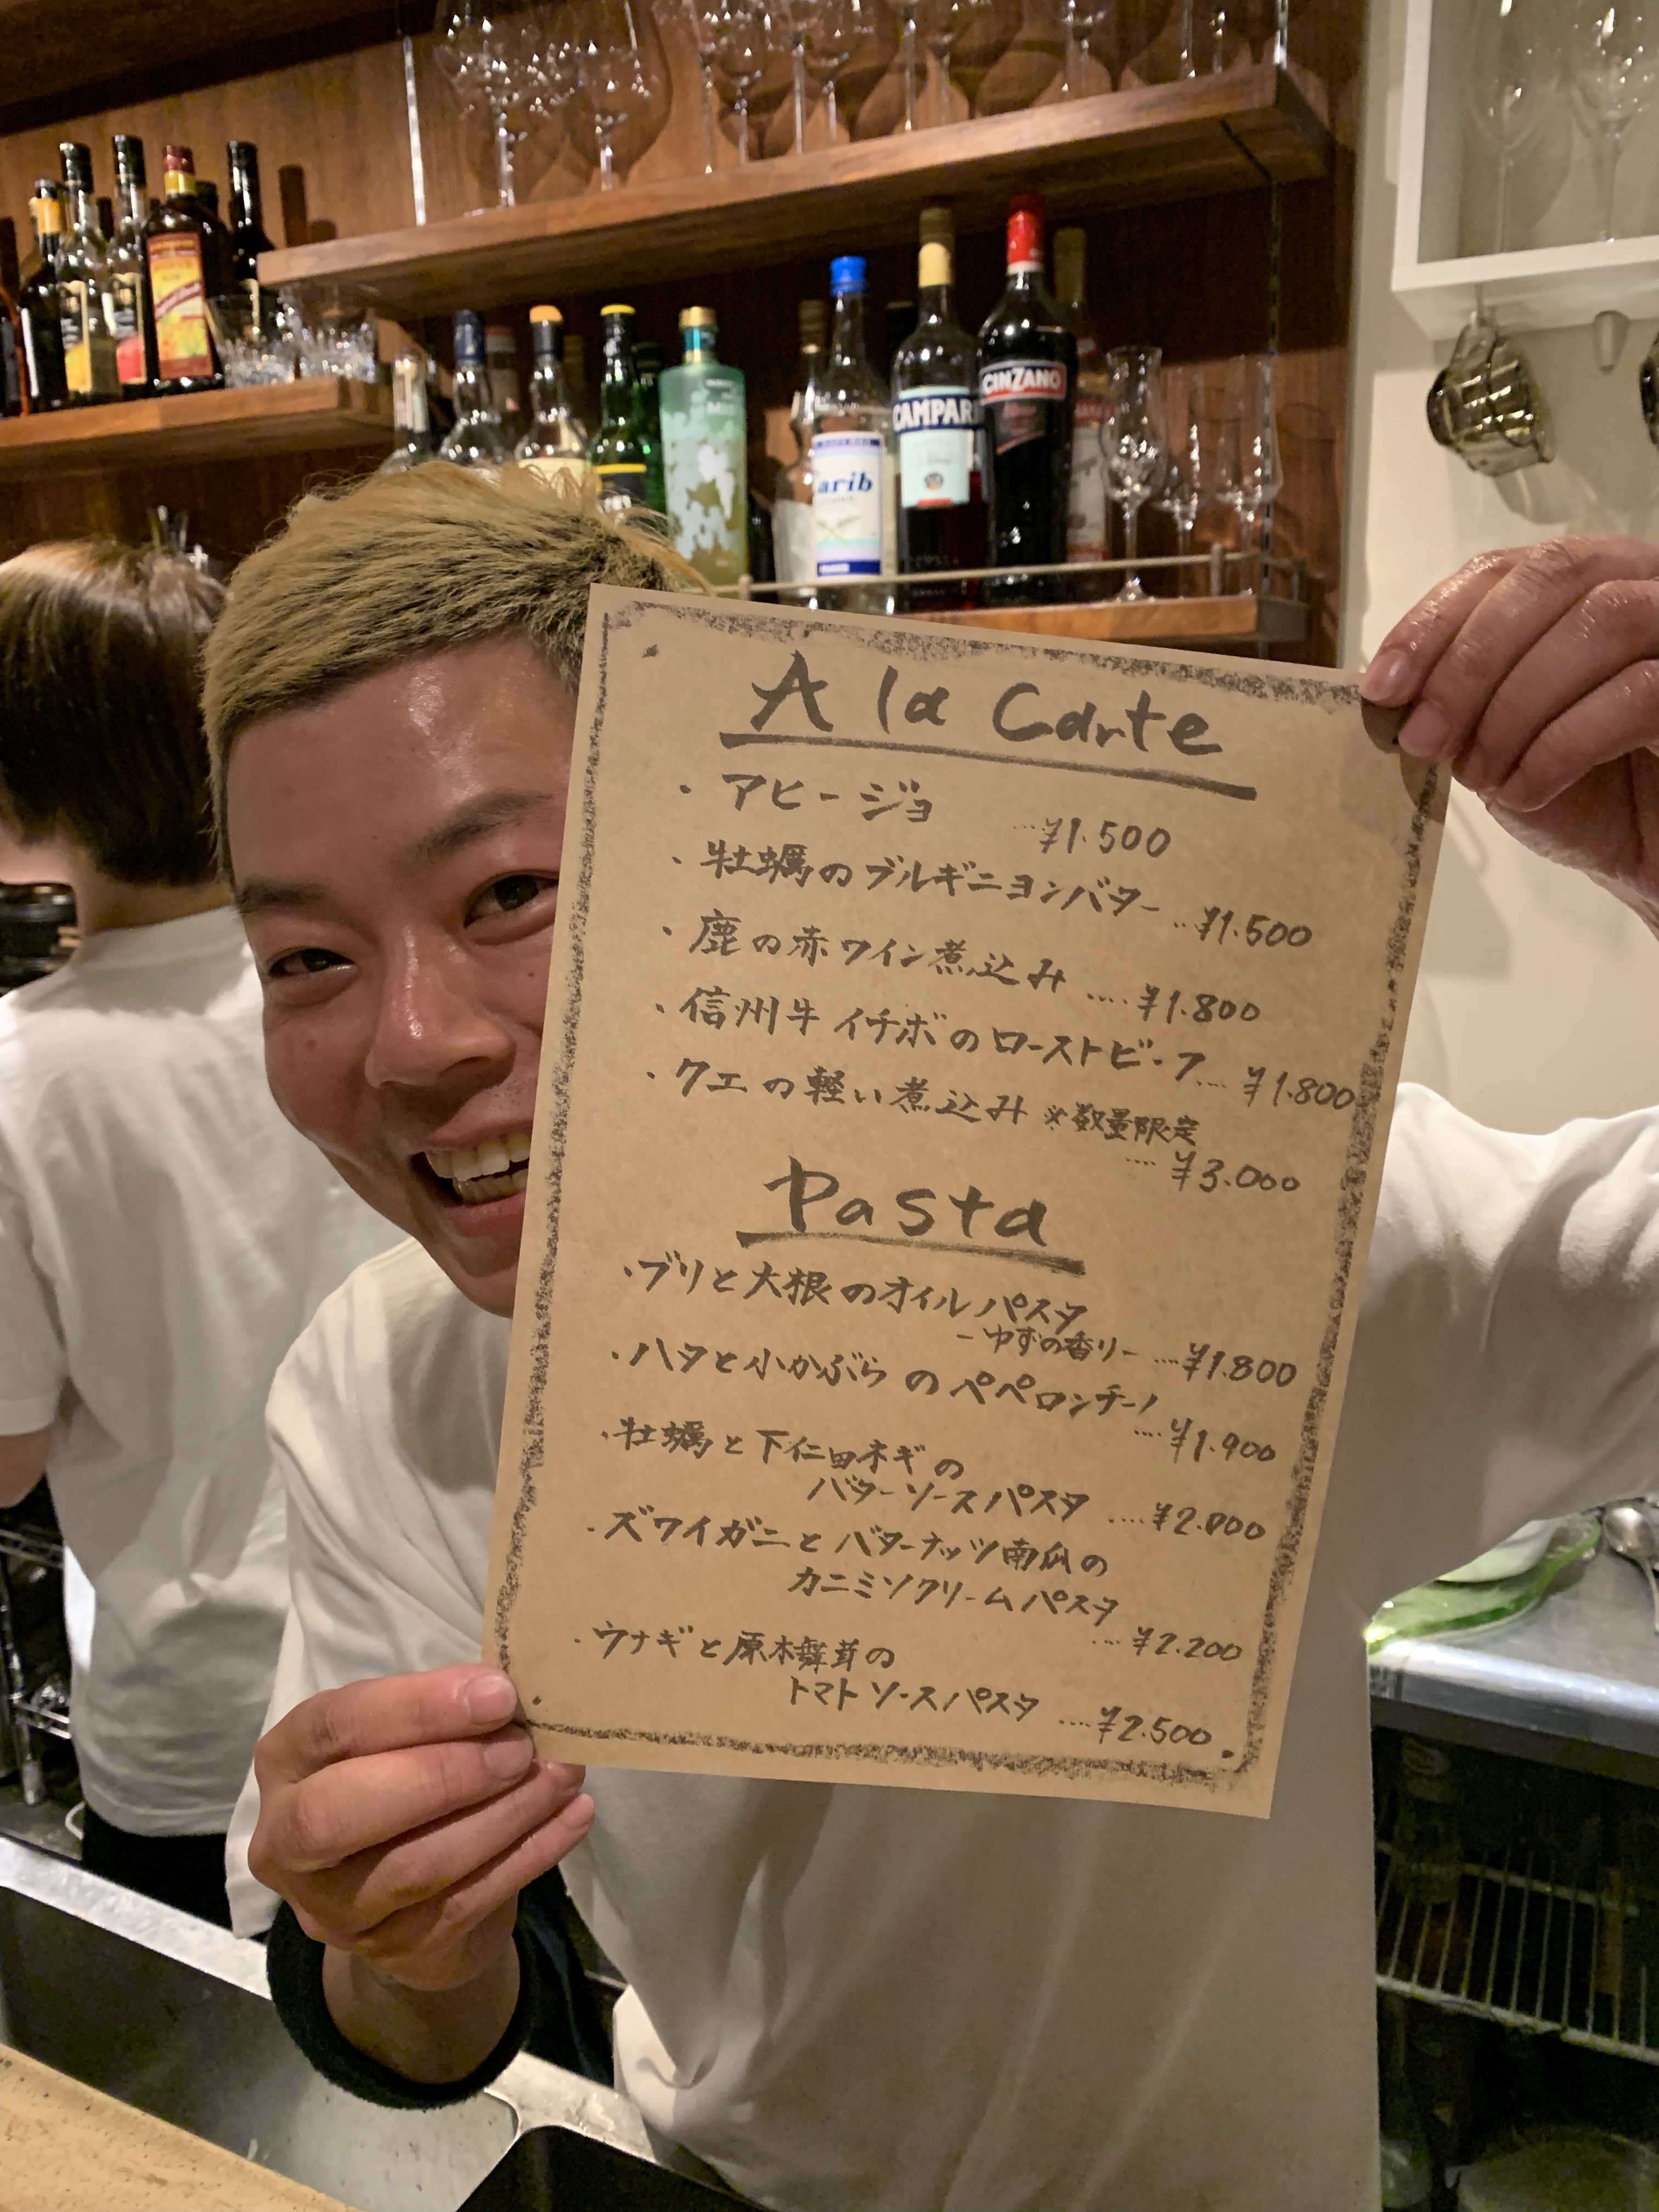 CAMPARI
CINZANO
arib
A la Carte
・アヒージョ
…¥1.500
・牡蠣のブルギニヨンバター …¥1.500
・鹿の赤ワイン煮込み ….¥1.800
・信州牛イチボのローストビーフ…. ¥1.800
・クエの軽い煮込み ※数量限定
….¥3.000
Pasta
・ブリと大根のオイルパスタ
-ゆずの香り- ….¥1.800
・ハタと小かぶらのペペロンチーノ
….¥1.900
・牡蠣と下仁田ネギの
バターソースパスタ ….¥2.000
・ズワイガニとバターナッツ南瓜の
カニミソクリームパスタ
…¥2.200
・ウナギと原木舞茸の
トマトソースパスタ ….¥2.500